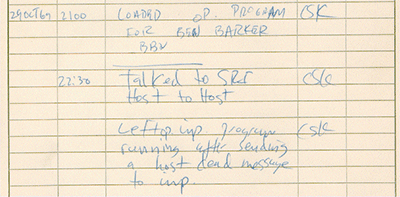 29 OCT 69 2100 LOADED OP. PROGRAM CSK
FOR BEN BARKER
BBN
22:30 Talked to SRI CSK
Host to Host
Left op imp program CSK
running after sending
a host dead message
to imp.